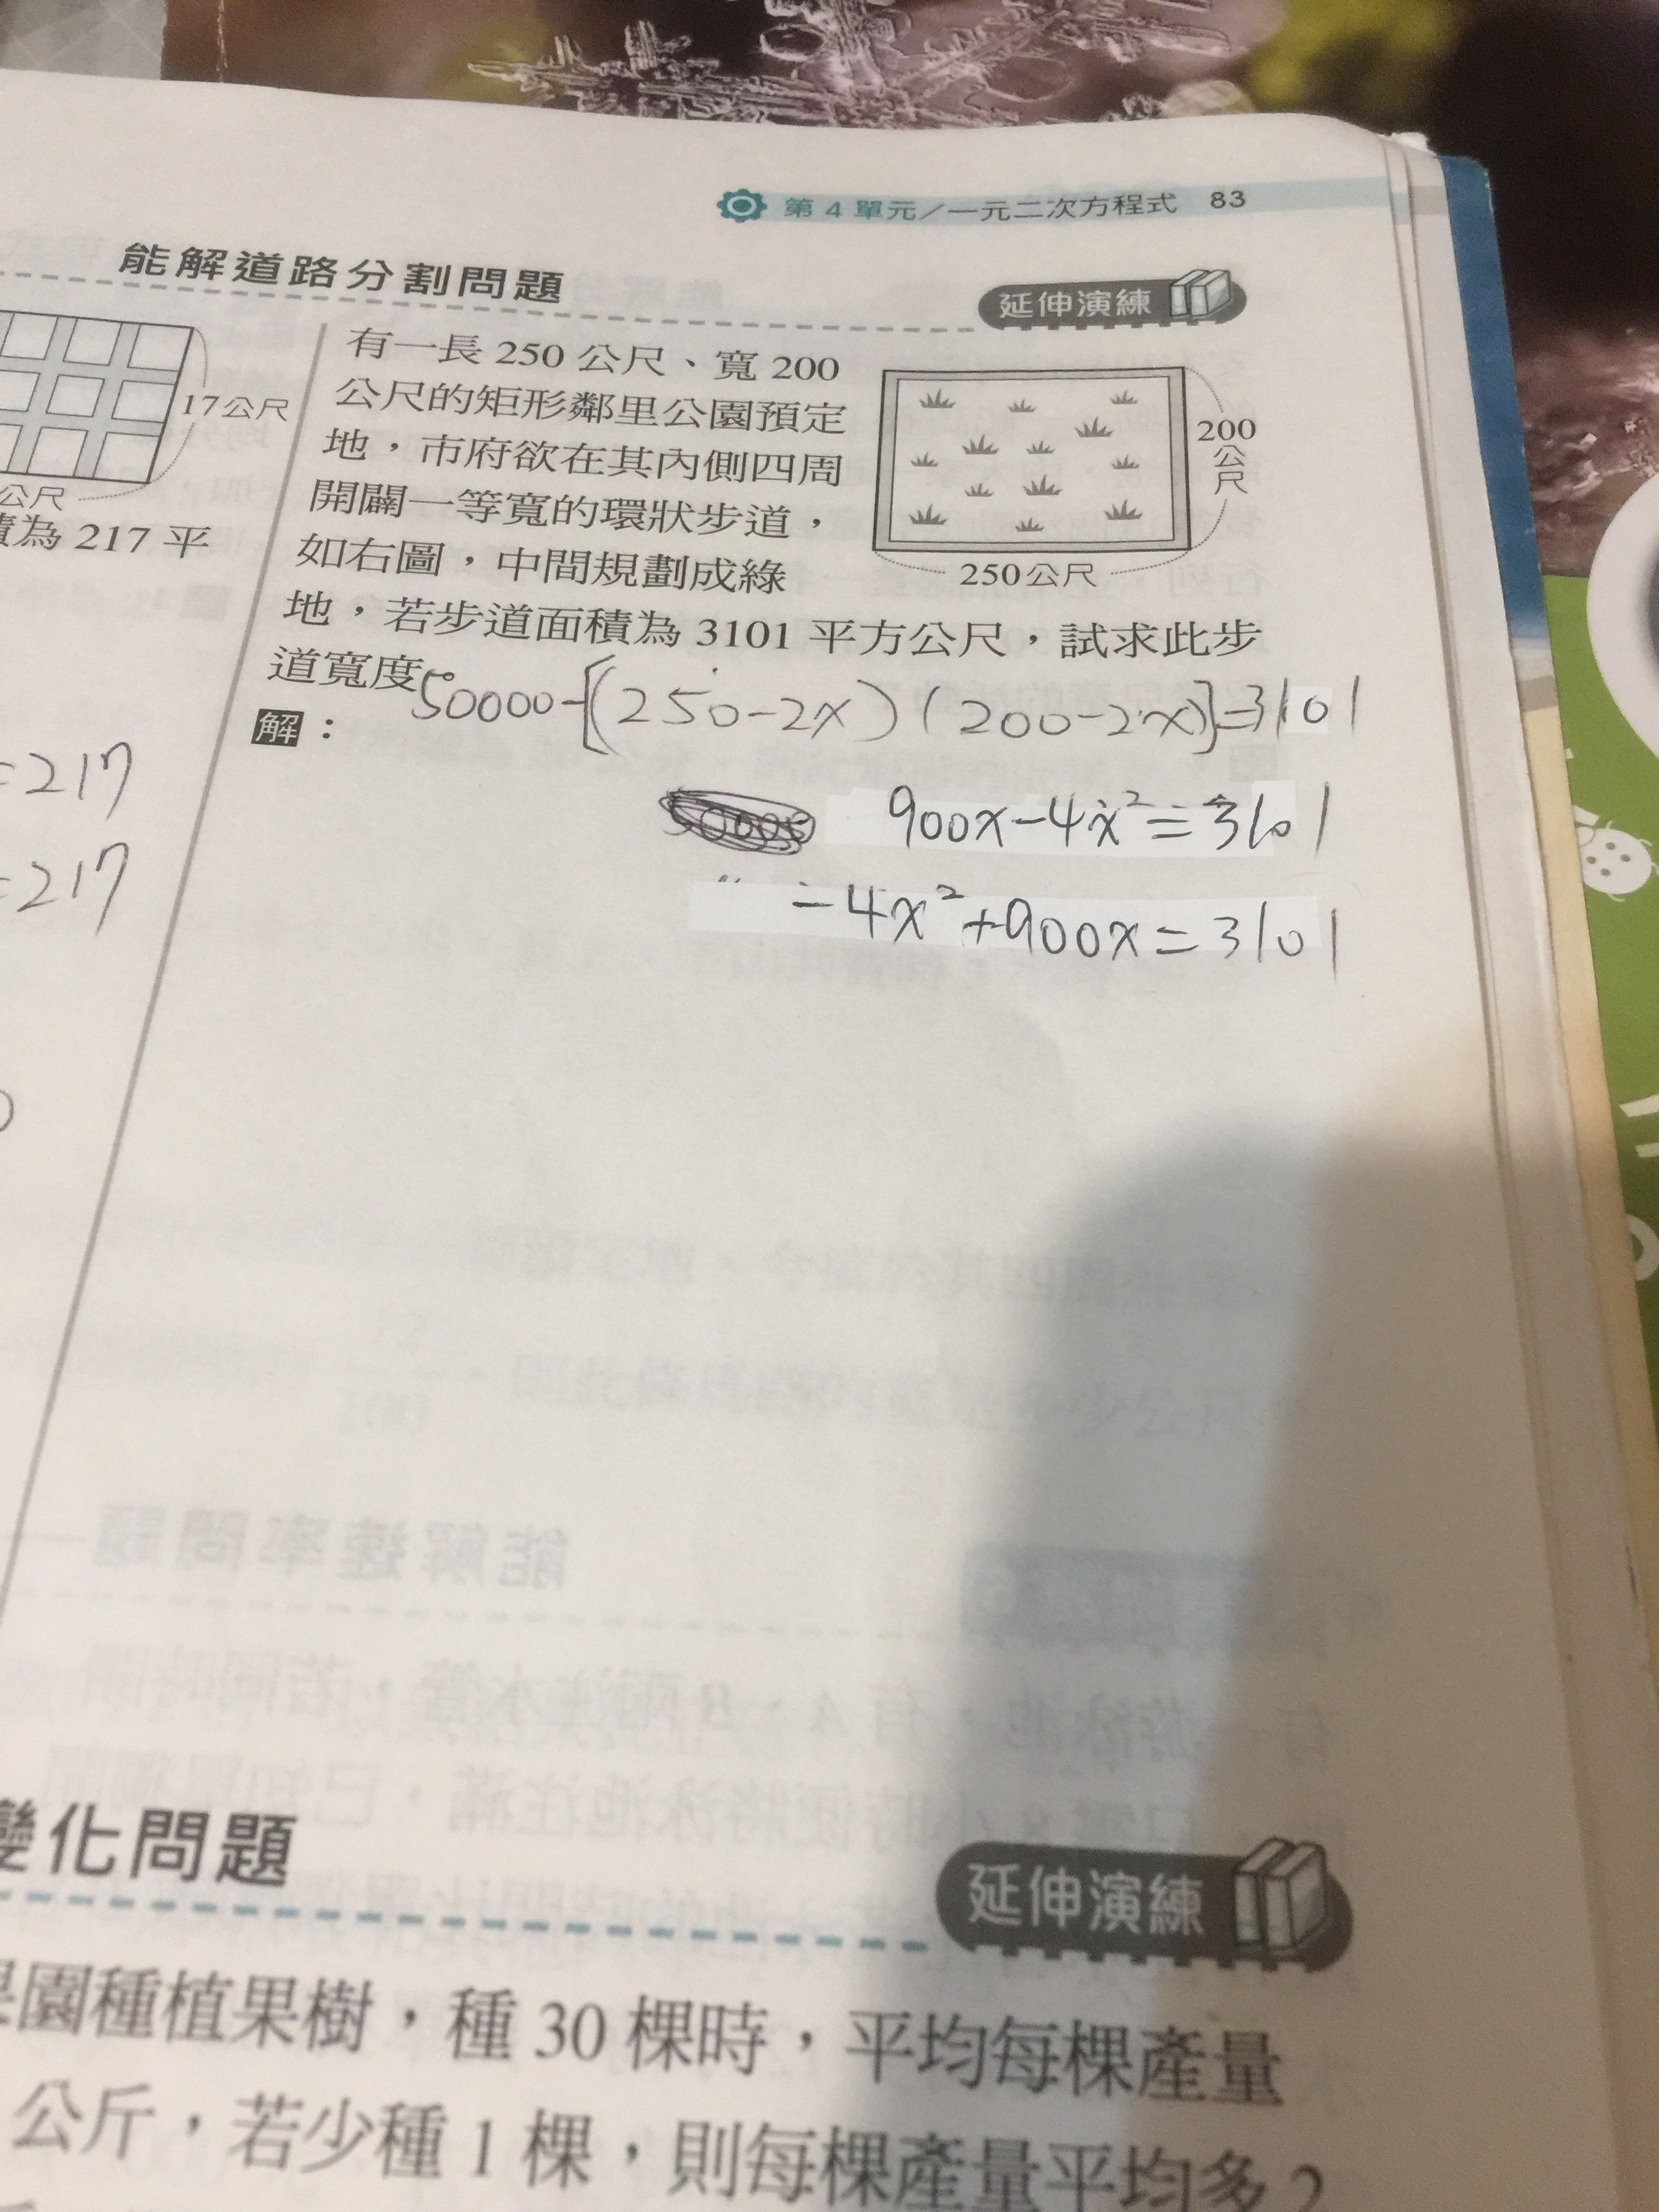 第4單元/一元二次方程式 83
能解道路分割問題
延伸演練
17公尺
公尺
積為 217 平
=217
=217
有一長 250 公尺、寬 200
公尺的矩形鄰里公園預定
地，市府欲在其內側四周
開闢一等寬的環狀步道，
如右圖，中間規劃成綠
地，若步道面積為 3101 平方公尺，試求此步
道寬度。
200公尺
250公尺
解：
50000-[(250-2x)(200-2x)]=3101
900x-4x²=3101
-4x²+900x=3101
變化問題
延伸演練
果園種植果樹，種 30 棵時，平均每棵產量
公斤，若少種 1 棵，則每棵產量平均多 2